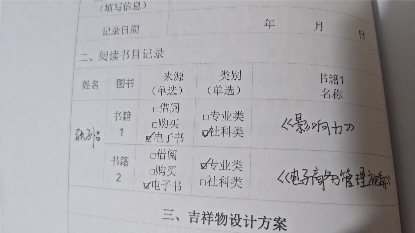 （填写信息）
记录日期 年 月 日
二、阅读书目记录
姓名 图书 来源（单选） 类别（单选） 书籍1名称
书籍1 □借阅 □购买 ☑电子书 □专业类 ☑社科类 《影响力》
书籍2 □借阅 □购买 ☑电子书 ☑专业类 □社科类 《电子商务管理
三、吉祥物设计方案